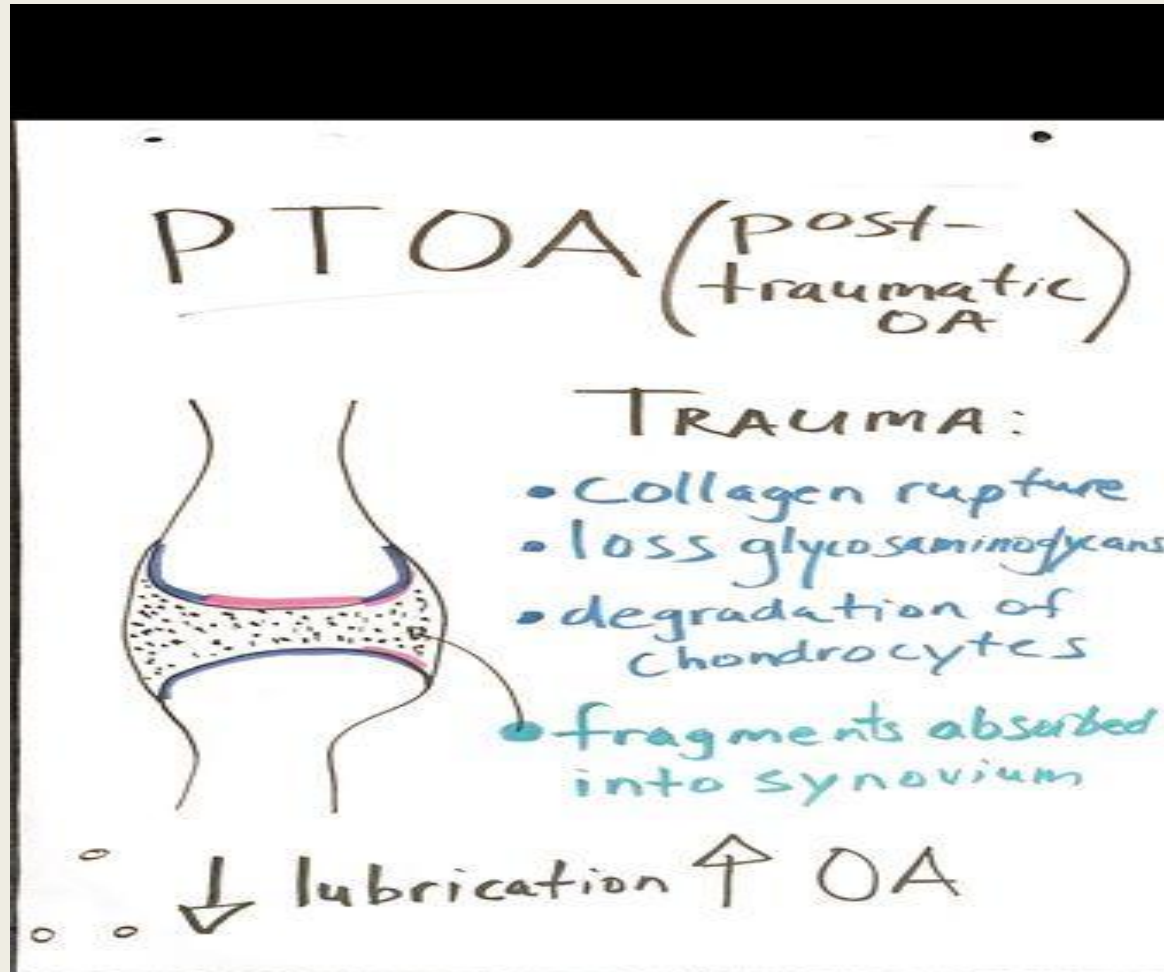 PTOA (post-
traumatic
OA)
TRAUMA:
• Collagen rupture
• loss glycosaminoglycans
• degradation of
chondrocytes
• fragments absorbed
into synovium
↓ lubrication ↑ OA